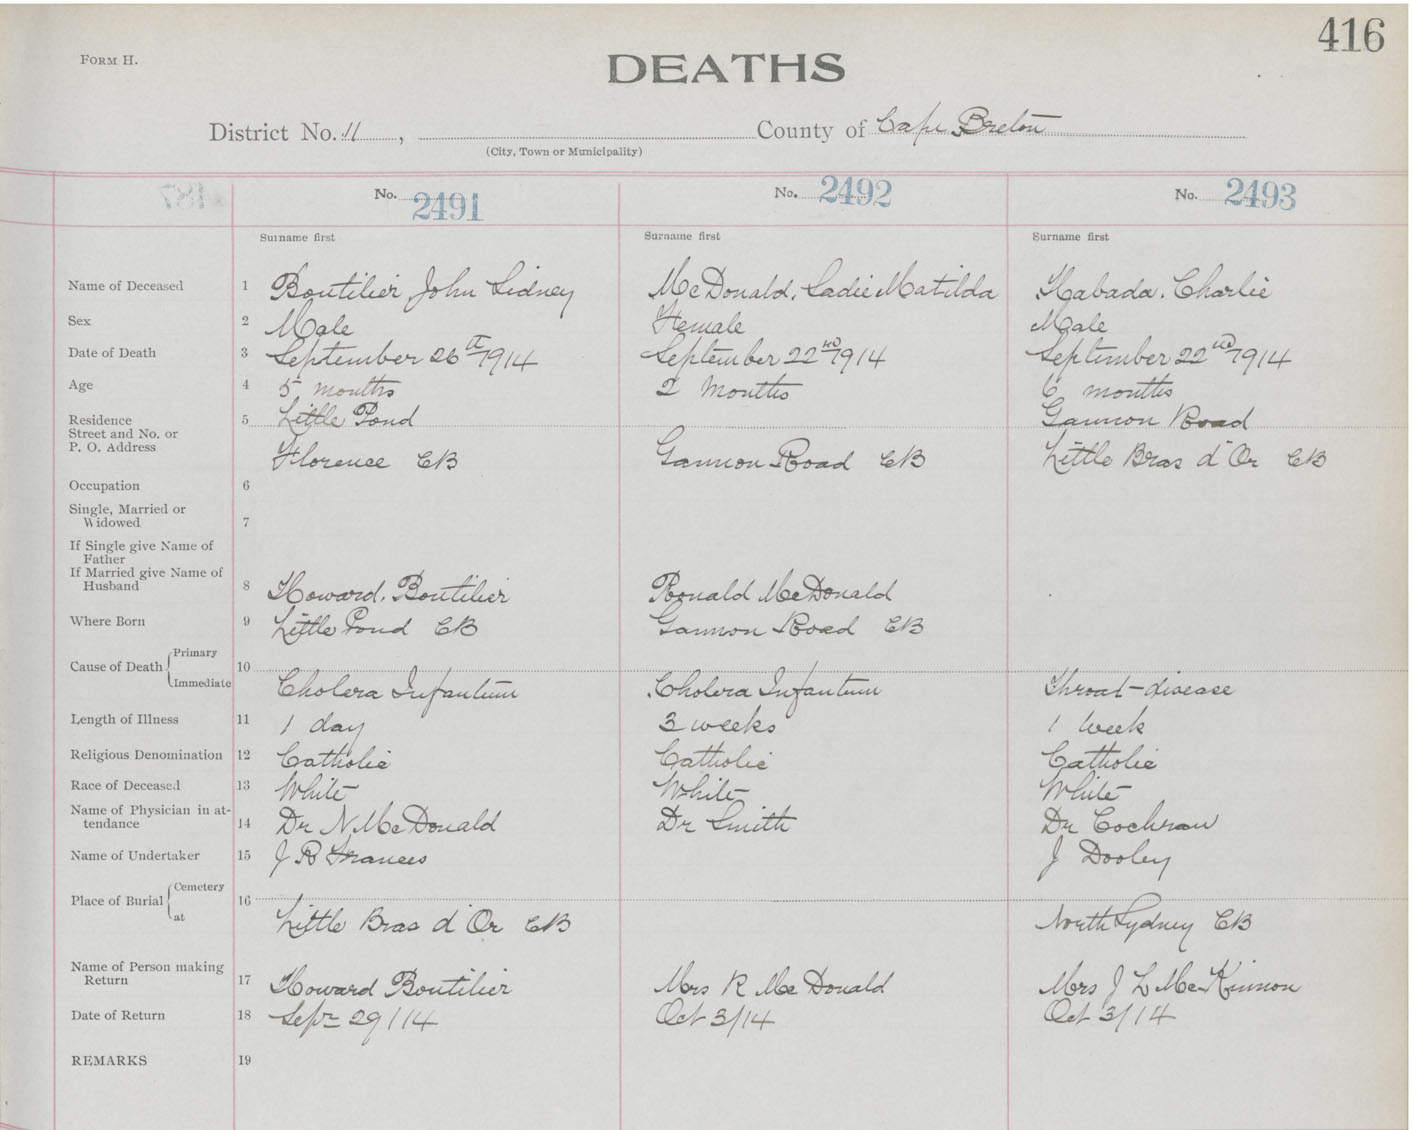 416
FORM H.
DEATHS
District No. 11, County of Cape Breton
(City, Town or Municipality)
187
No. 2491 No. 2492 No. 2493
Surname first Surname first Surname first
Name of Deceased 1 Boutilier, John Sidney McDonald, Sadie Matilda Kabada, Charlie
Sex 2 Male Female Male
Date of Death 3 September 26th 1914 September 22nd 1914 September 22nd 1914
Age 4 5 months 2 months 6 months
Residence 5 Little Pond Gannon Road
Street and No. or
P. O. Address Florence CB Gannon Road CB Little Bras d'Or CB
Occupation 6
Single, Married or
Widowed 7
If Single give Name of
Father
If Married give Name of
Husband 8 Howard Boutilier Ronald McDonald
Where Born 9 Little Pond CB Gannon Road CB
Cause of Death Primary 10
Immediate Cholera Infantum Cholera Infantum Throat-disease
Length of Illness 11 1 day 3 weeks 1 week
Religious Denomination 12 Catholic Catholic Catholic
Race of Deceased 13 White White White
Name of Physician in at-
tendance 14 Dr N McDonald Dr Smith Dr Cochran
Name of Undertaker 15 J R Frances J Dooley
Place of Burial Cemetery 16
at Little Bras d'Or CB North Sydney CB
Name of Person making
Return 17 Howard Boutilier Mrs R McDonald Mrs J L McKinnon
Date of Return 18 Sepr 29/14 Oct 3/14 Oct 3/14
REMARKS 19